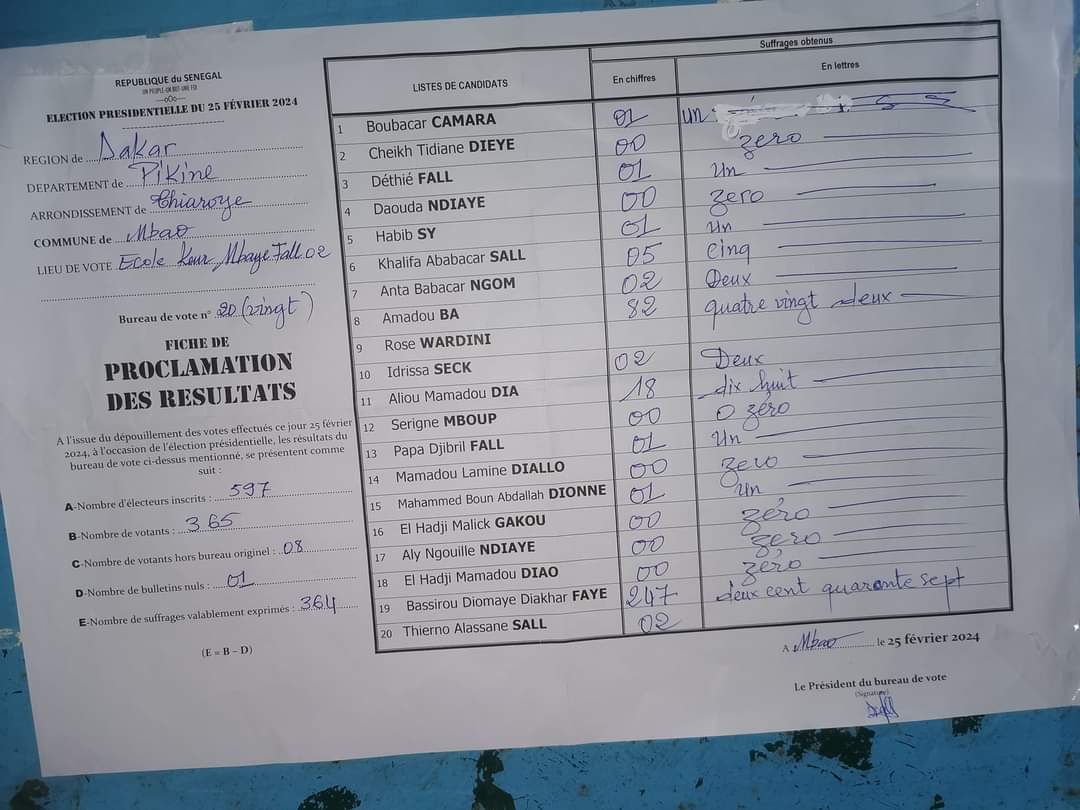 REPUBLIQUE du SENEGAL
UN PEUPLE-UN BUT-UNE FOI
---oOo---
ELECTION PRESIDENTIELLE DU 25 FÉVRIER 2024
REGION de Dakar
DEPARTEMENT de Pikine
ARRONDISSEMENT de Thiaroye
COMMUNE de Mbao
LIEU DE VOTE Ecole Keur Mbaye Fall 02
Bureau de vote n° 20 (vingt)
FICHE DE
PROCLAMATION
DES RESULTATS
A l'issue du dépouillement des votes effectués ce jour 25 février
2024, à l'occasion de l'élection présidentielle, les résultats du
bureau de vote ci-dessus mentionné, se présentent comme
suit :
A-Nombre d'électeurs inscrits : 597
B-Nombre de votants : 365
C-Nombre de votants hors bureau originel : 08
D-Nombre de bulletins nuls : 01
E-Nombre de suffrages valablement exprimés : 364
(E = B – D)
LISTES DE CANDIDATS
Suffrages obtenus
En chiffres En lettres
1 Boubacar CAMARA 01 un
2 Cheikh Tidiane DIEYE 00 zero
3 Déthié FALL 01 Un
4 Daouda NDIAYE 00 zero
5 Habib SY 01 Un
6 Khalifa Ababacar SALL 05 cinq
7 Anta Babacar NGOM 02 Deux
8 Amadou BA 82 quatre vingt deux
9 Rose WARDINI
10 Idrissa SECK 02 Deux
11 Aliou Mamadou DIA 18 dix huit
12 Serigne MBOUP 00 0 zéro
13 Papa Djibril FALL 01 Un
14 Mamadou Lamine DIALLO 00 zero
15 Mahammed Boun Abdallah DIONNE 01 un
16 El Hadji Malick GAKOU 00 zéro
17 Aly Ngouille NDIAYE 00 zéro
18 El Hadji Mamadou DIAO 00 zéro
19 Bassirou Diomaye Diakhar FAYE 247 deux cent quarante sept
20 Thierno Alassane SALL 02
A Mbao le 25 février 2024
Le Président du bureau de vote
(Signature)